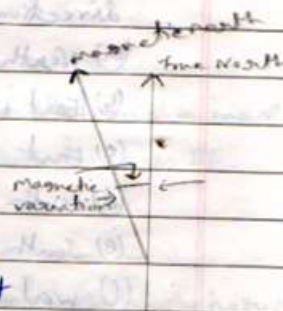 magnetic north
True North
magnetic
variation